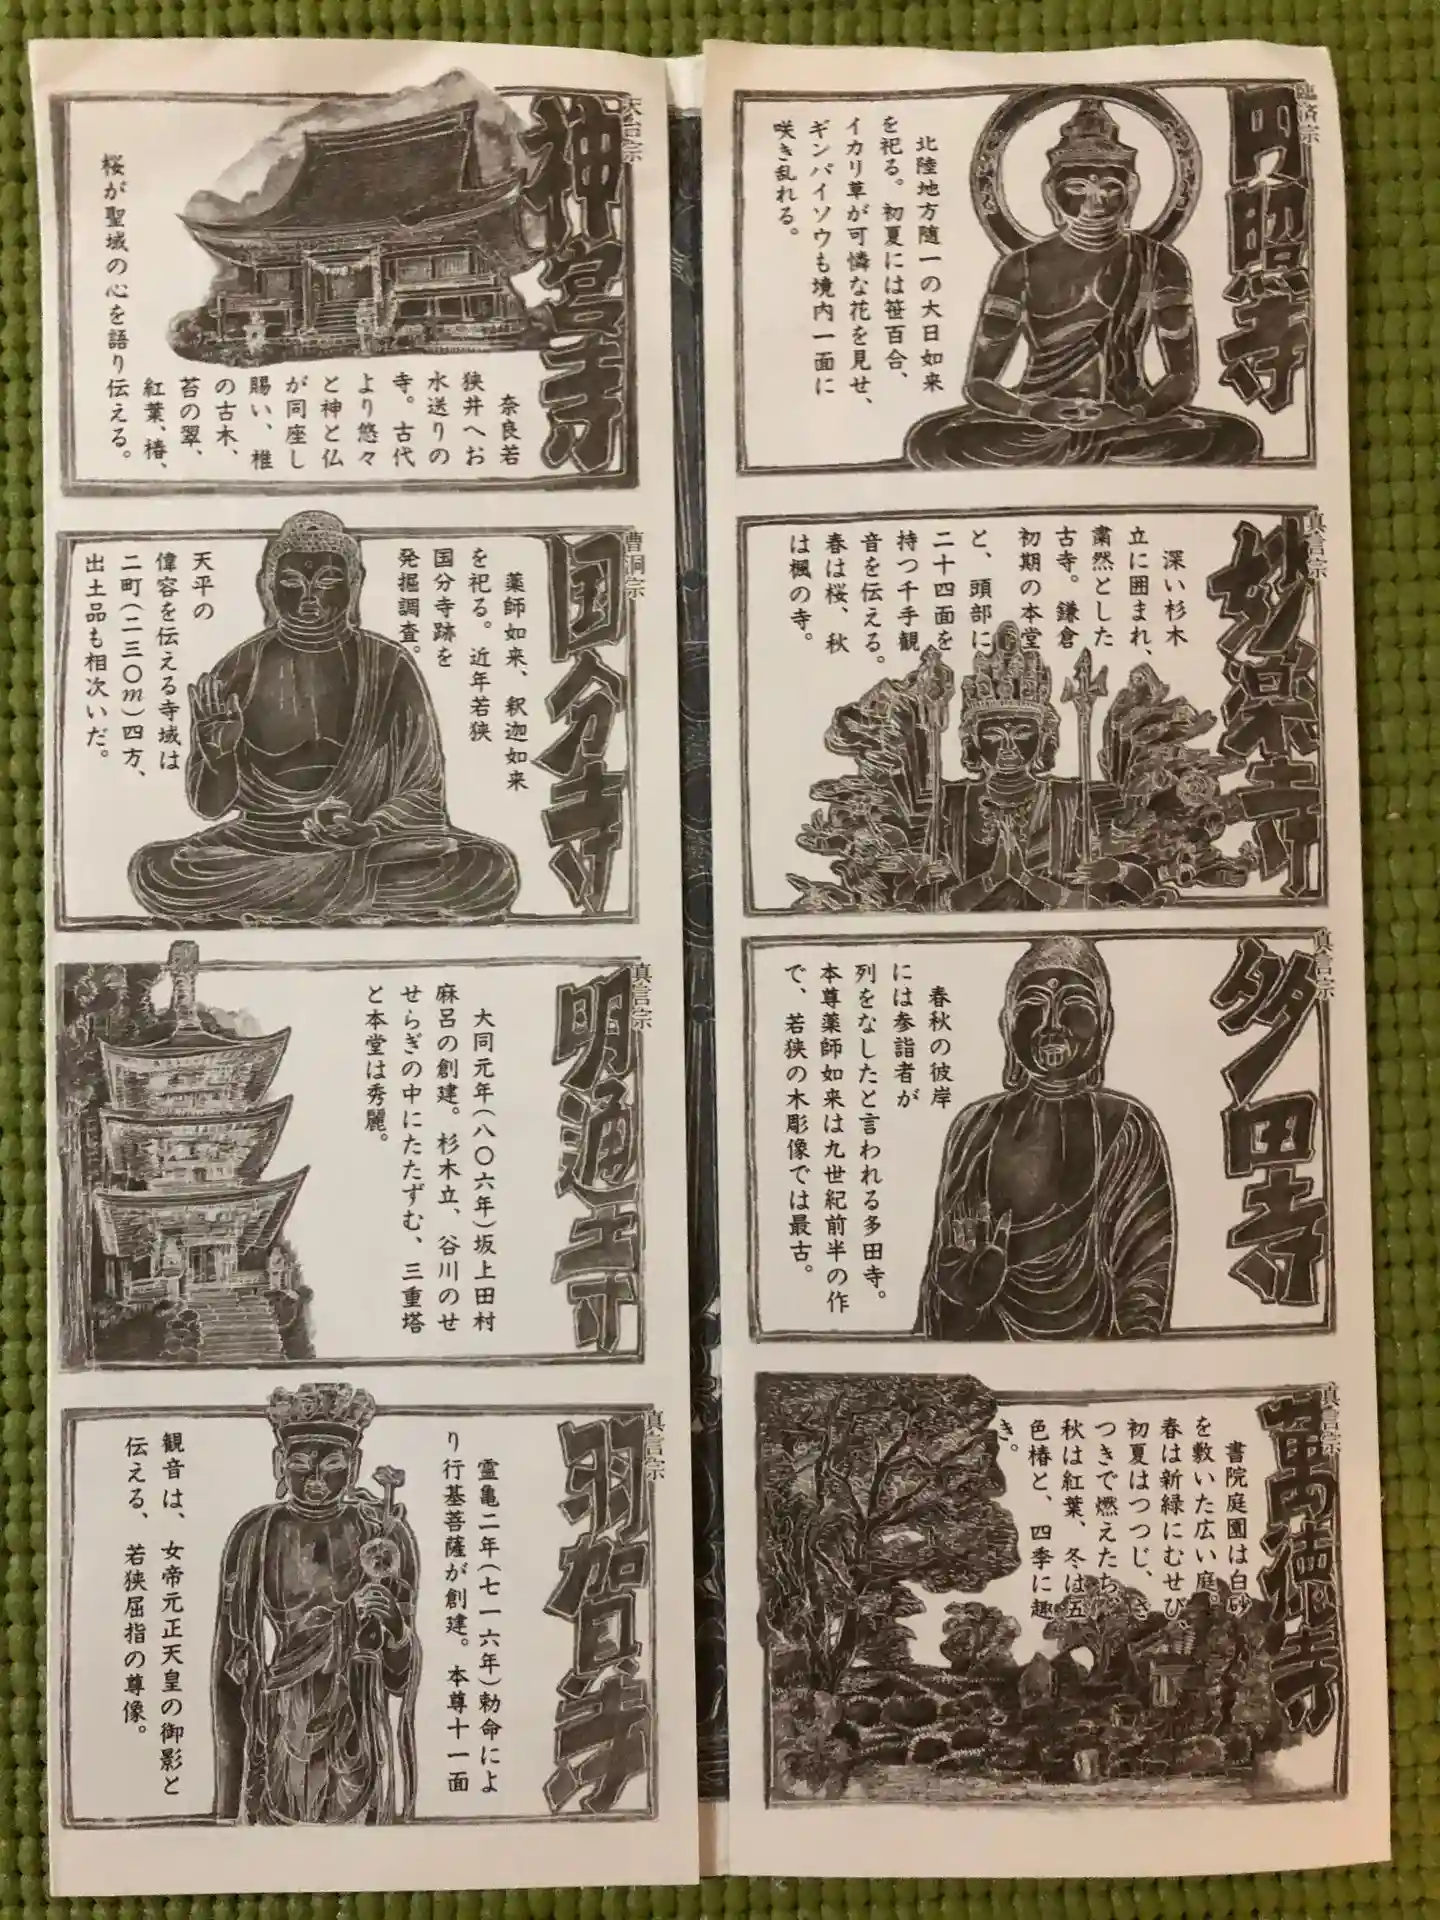 臨済宗
円照寺
北陸地方随一の大日如来
を祀る。初夏には笹百合、
イカリ草が可憐な花を見せ、
ギンバイソウも境内一面に
咲き乱れる。
真言宗
妙楽寺
深い杉木
立に囲まれ、
粛然とした
古寺。鎌倉
初期の本堂
と、頭部に
二十四面を
持つ千手観
音を伝える。
春は桜、秋
は楓の寺。
真言宗
多田寺
春秋の彼岸
には参詣者が
列をなしたと言われる多田寺。
本尊薬師如来は九世紀前半の作
で、若狭の木彫像では最古。
真言宗
萬徳寺
書院庭園は白砂
を敷いた広い庭。
春は新緑にむせび
初夏はつつじ、さ
つきで燃えたち、
秋は紅葉、冬は五
色椿と、四季に趣
き。
天台宗
神宮寺
奈良若
狭井へお
水送りの
寺。古代
より悠々
と神と仏
が同座し
賜い、椎
の古木、
苔の翠、
紅葉、椿、
桜が聖域の心を語り伝える。
曹洞宗
国分寺
薬師如来、釈迦如来
を祀る。近年若狭
国分寺跡を
発掘調査。
天平の
偉容を伝える寺域は
二町(二三〇m)四方、
出土品も相次いだ。
真言宗
明通寺
大同元年(八〇六年)坂上田村
麻呂の創建。杉木立、谷川のせ
せらぎの中にたたずむ、三重塔
と本堂は秀麗。
真言宗
羽賀寺
霊亀二年(七一六年)勅命によ
り行基菩薩が創建。本尊十一面
観音は、女帝元正天皇の御影と
伝える、若狭屈指の尊像。